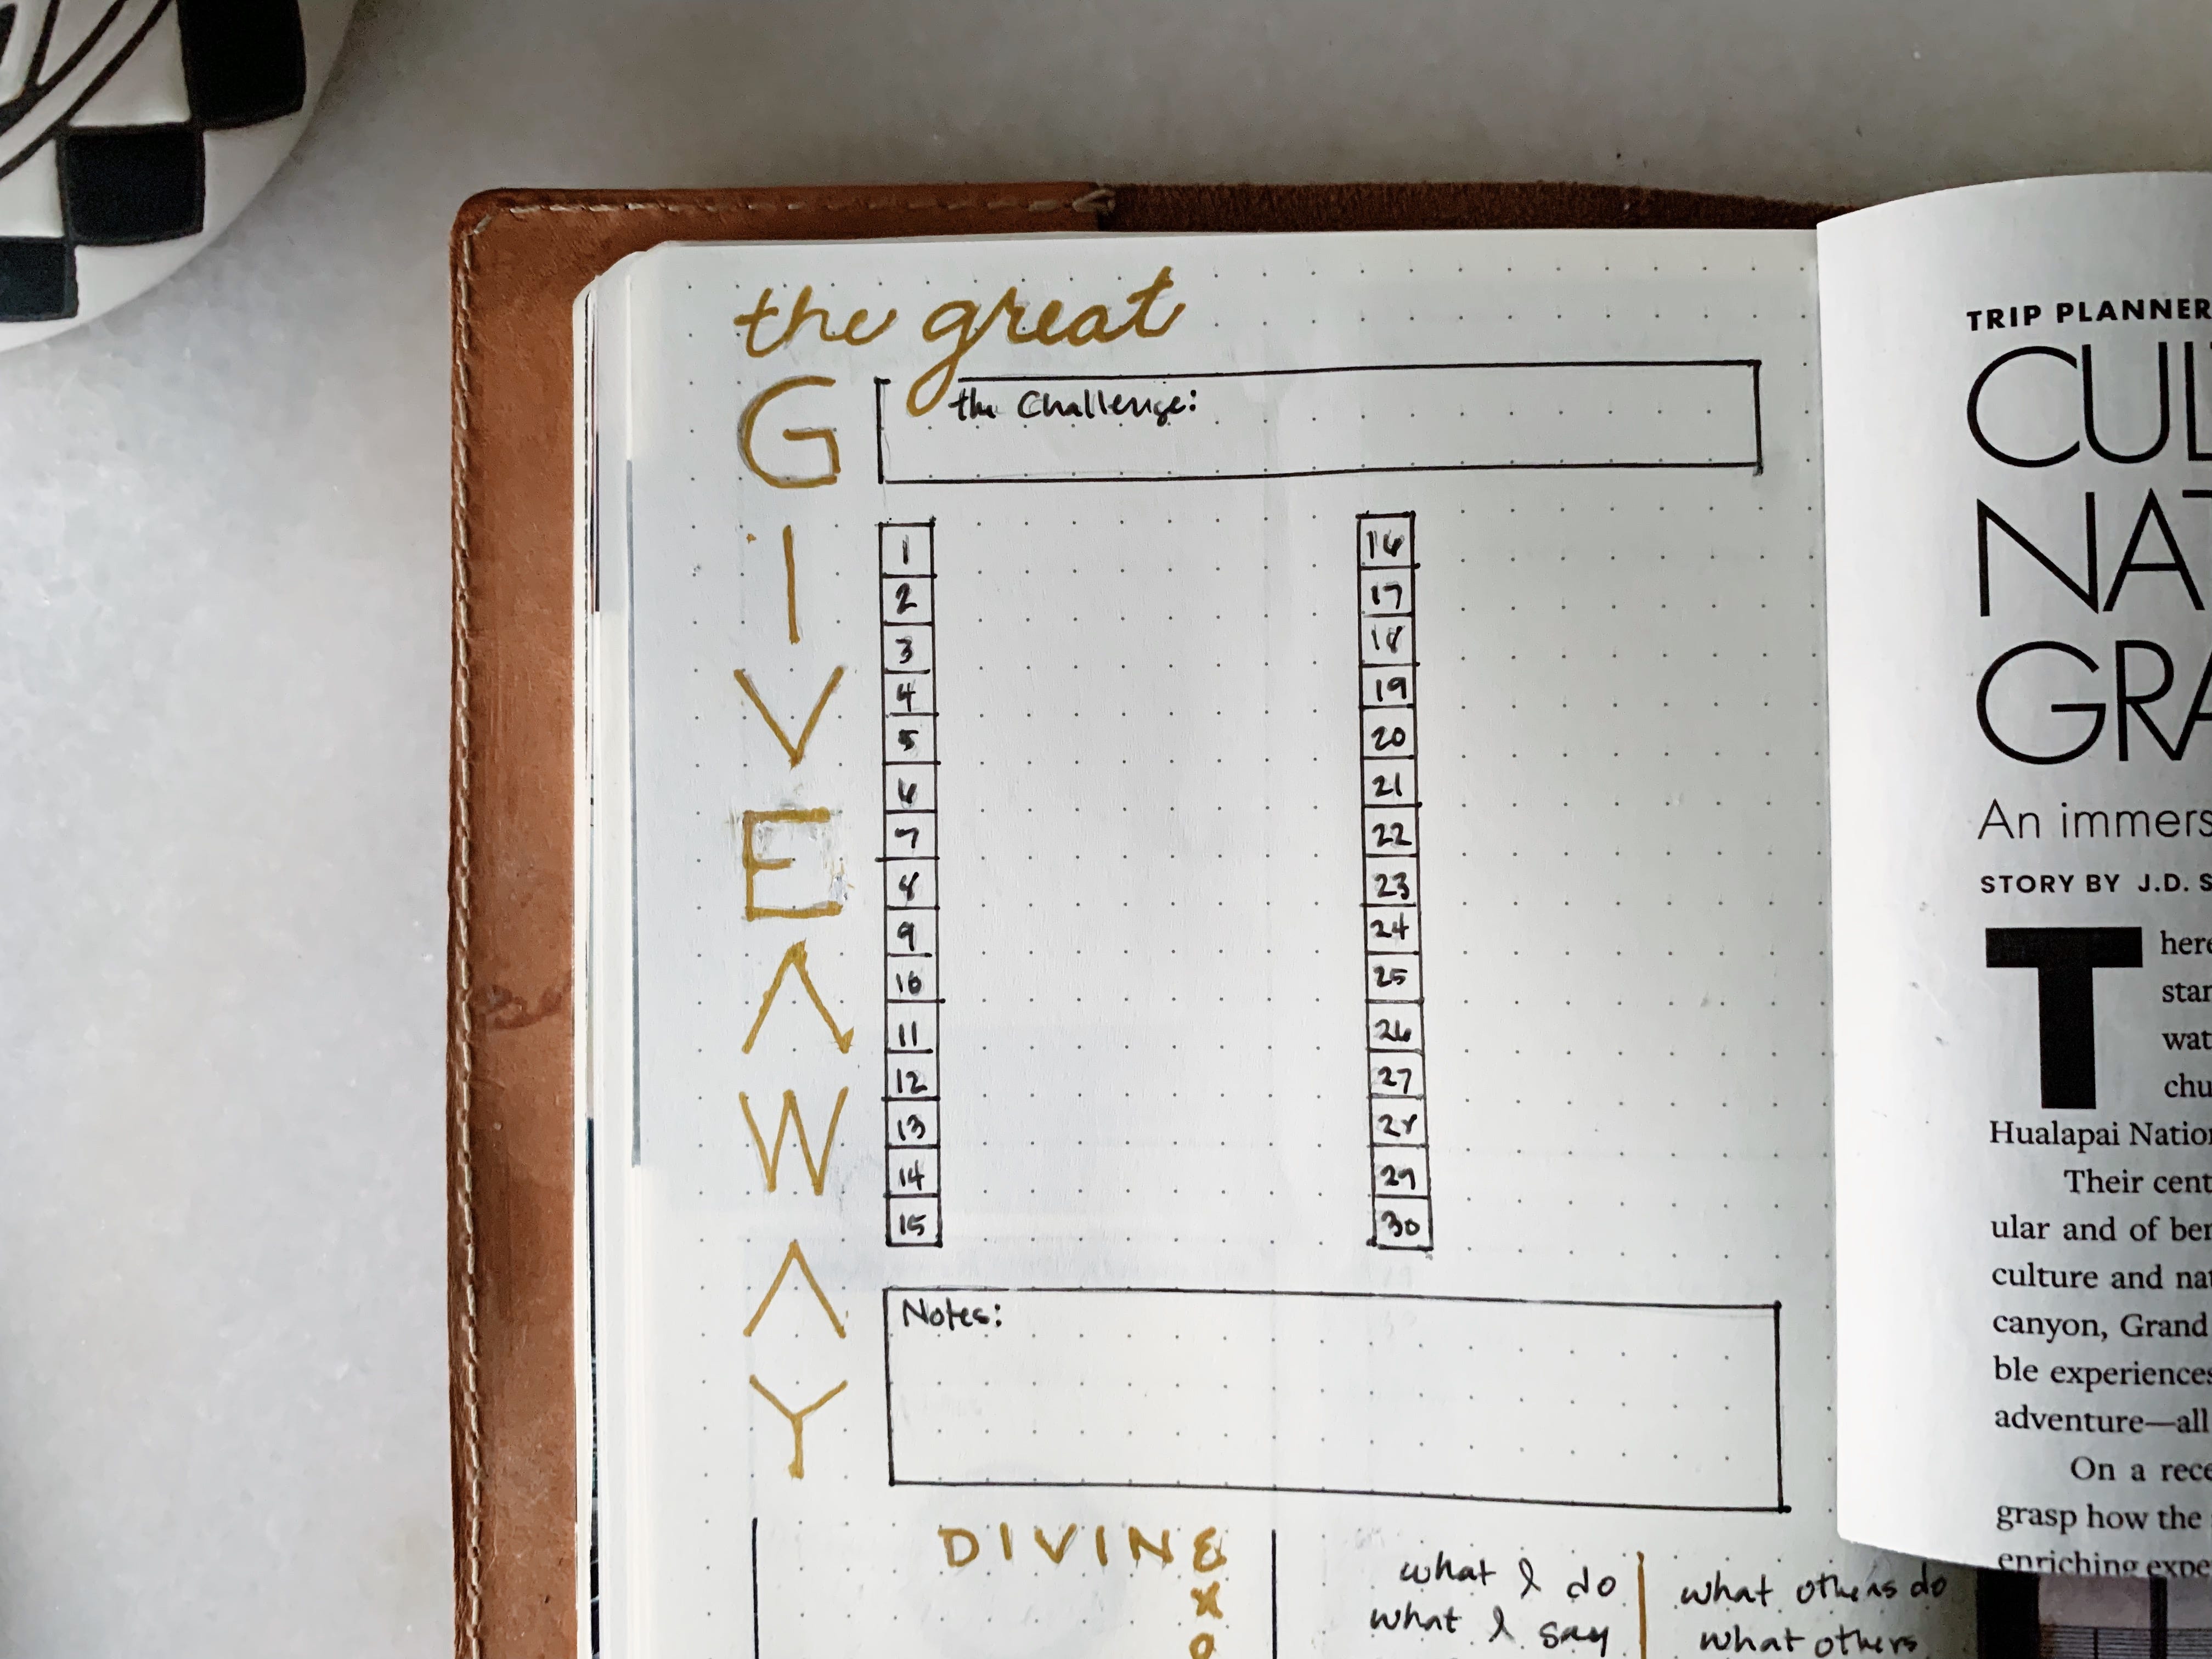 the great
GIVEAWAY
the Challenge:
1
2
3
4
5
6
7
8
9
10
11
12
13
14
15
16
17
18
19
20
21
22
23
24
25
26
27
28
29
30
Notes:
DIVINE
X
O
what I do
what I say
what others do
what others
TRIP PLANNER
CUL
NAT
GRA
An immers
STORY BY J.D. S
There
star
wat
chu
Hualapai Nation
Their cent
ular and of ben
culture and nat
canyon, Grand
ble experiences
adventure—all
On a rece
grasp how the
enriching expe